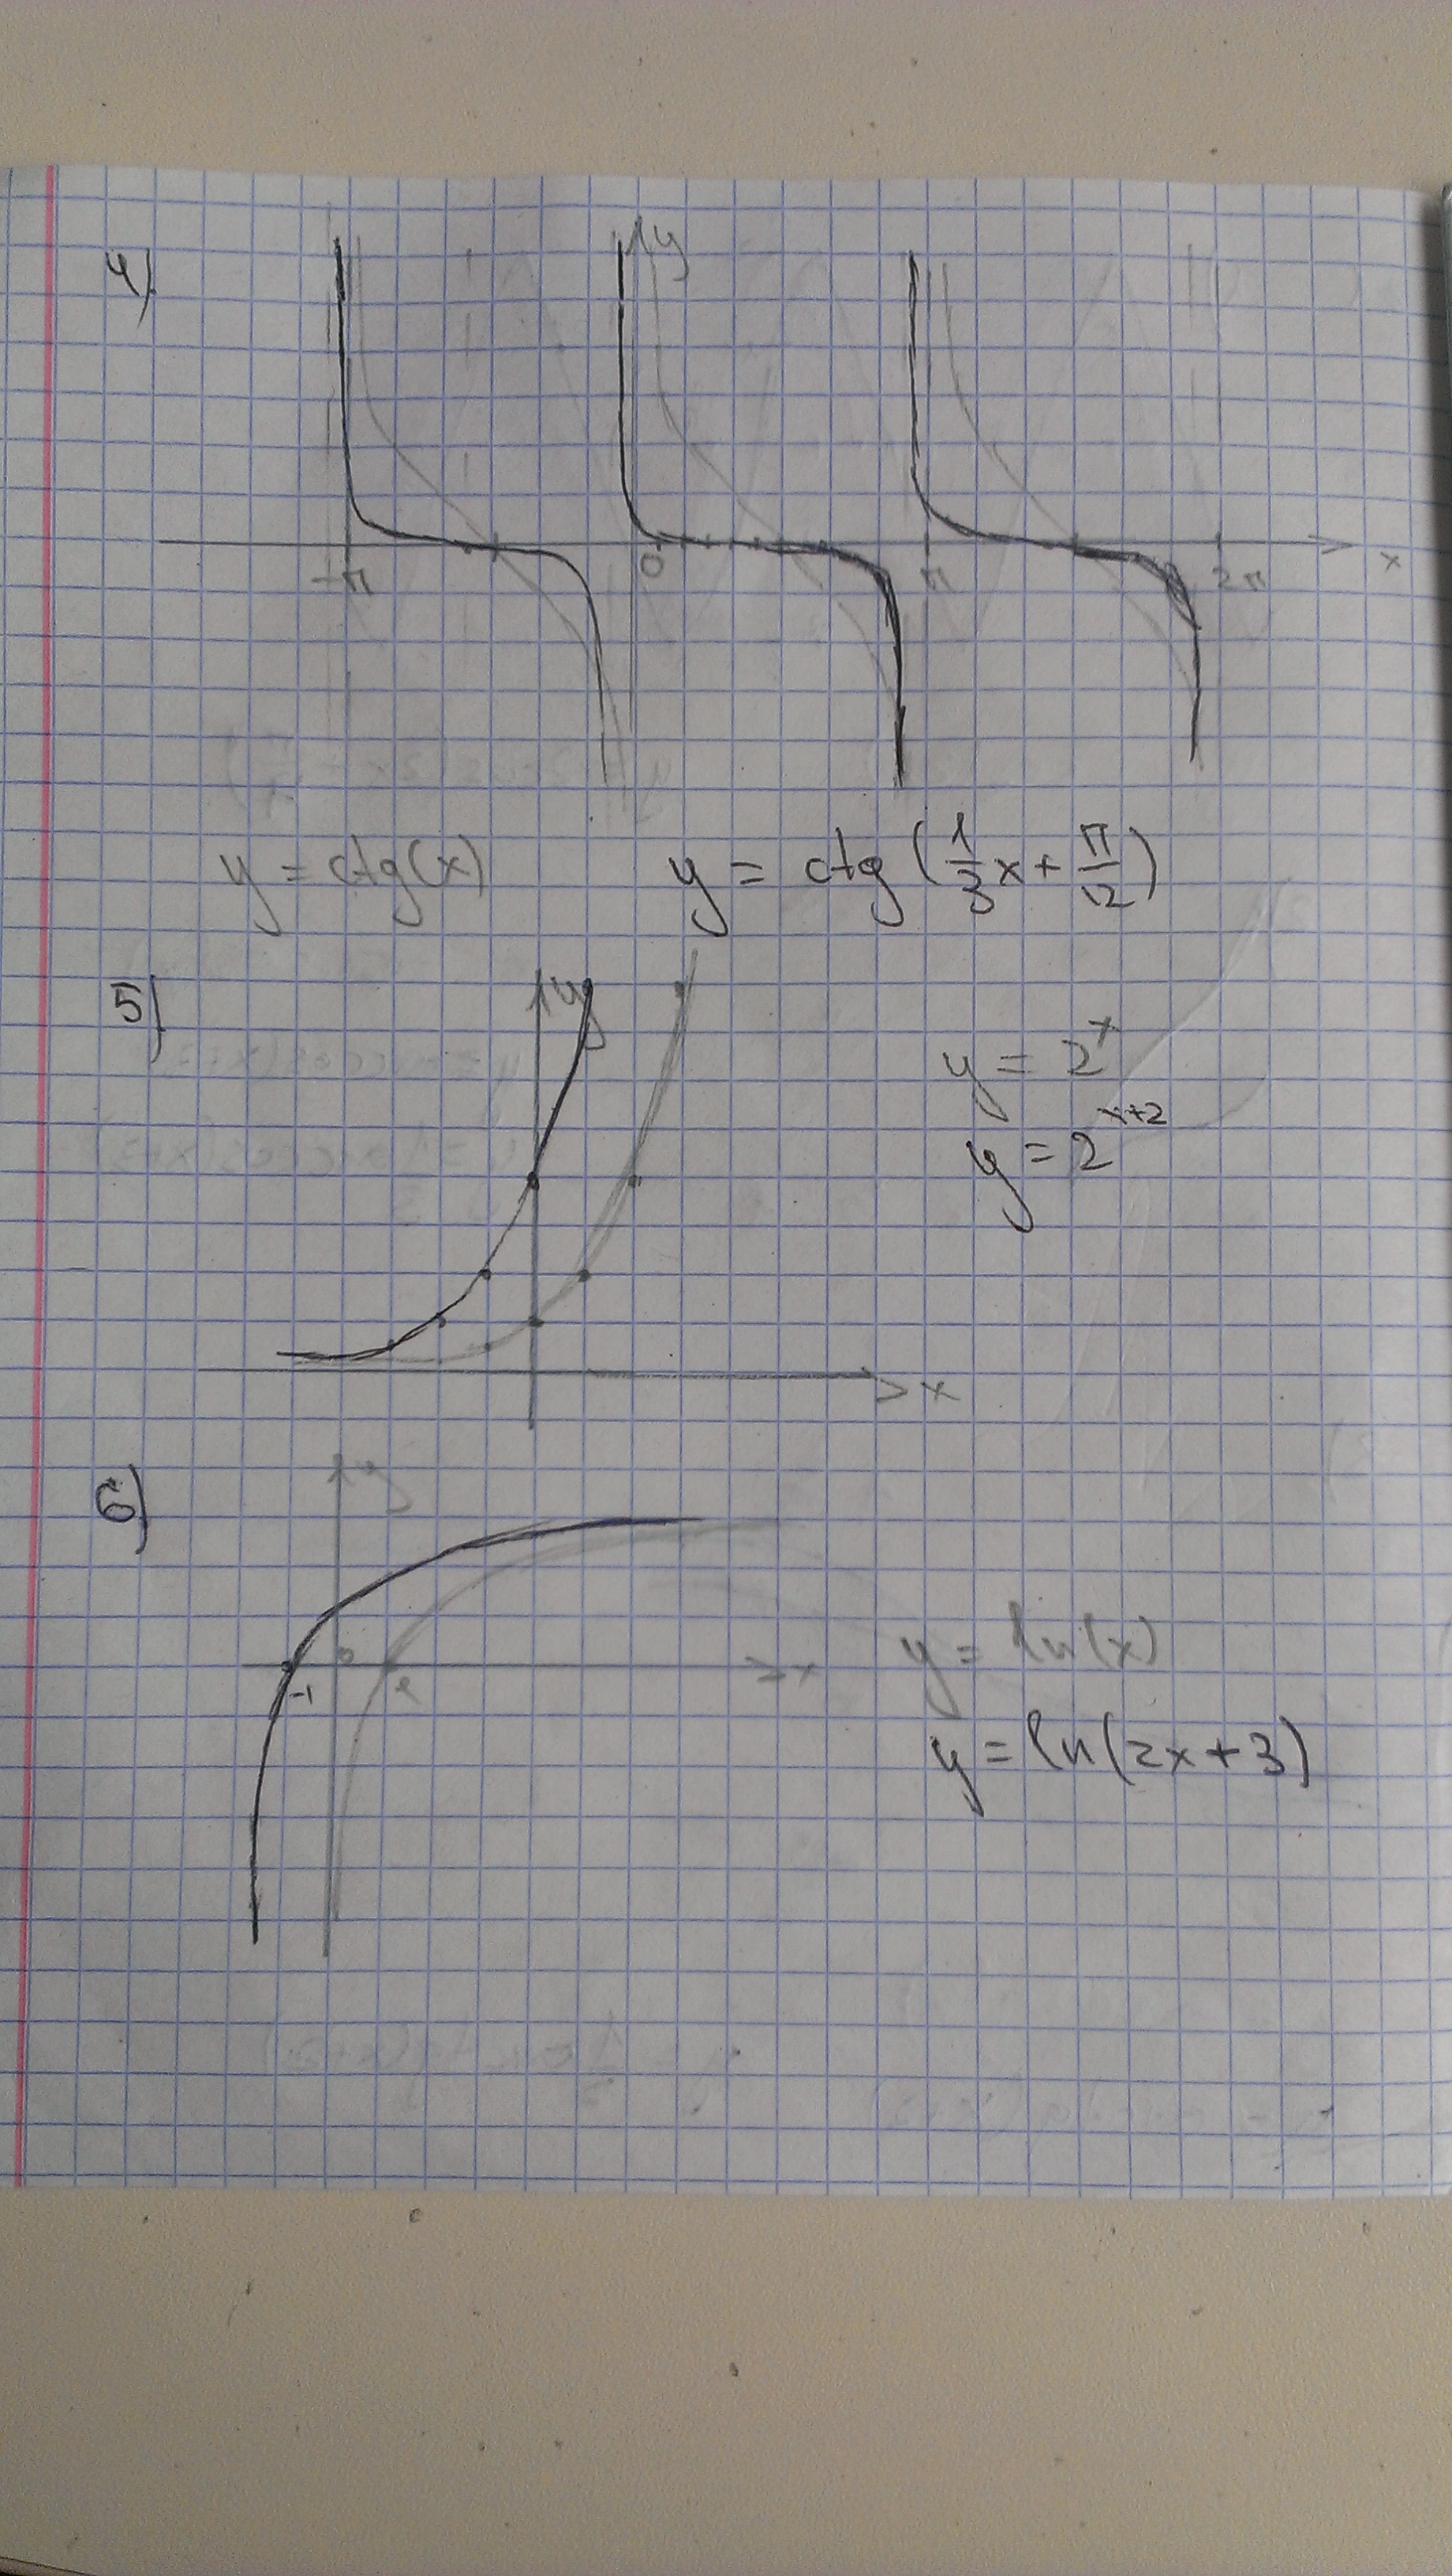 4)
y
-π 0 π 2π x
y = ctg(x) y = ctg(1/3x + π/12)
5)
y
y = 2^x
y = 2^(x+2)
x
6)
y
0 x
-1
y = ln(x)
y = ln(2x+3)